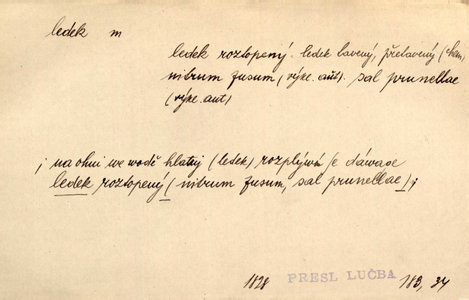 ledek m
ledek roztopený. ledek tavený, přetavený (chem)
nitrum fusum (výkl. aut). sal prunellae
(výkl. aut)
; na ohni we wodě hlatný (ledek) rozplýwá se dáwaje
ledek roztopený (nitrum fusum, sal prunellae);
1828 PRESL LUČBA 183, 34